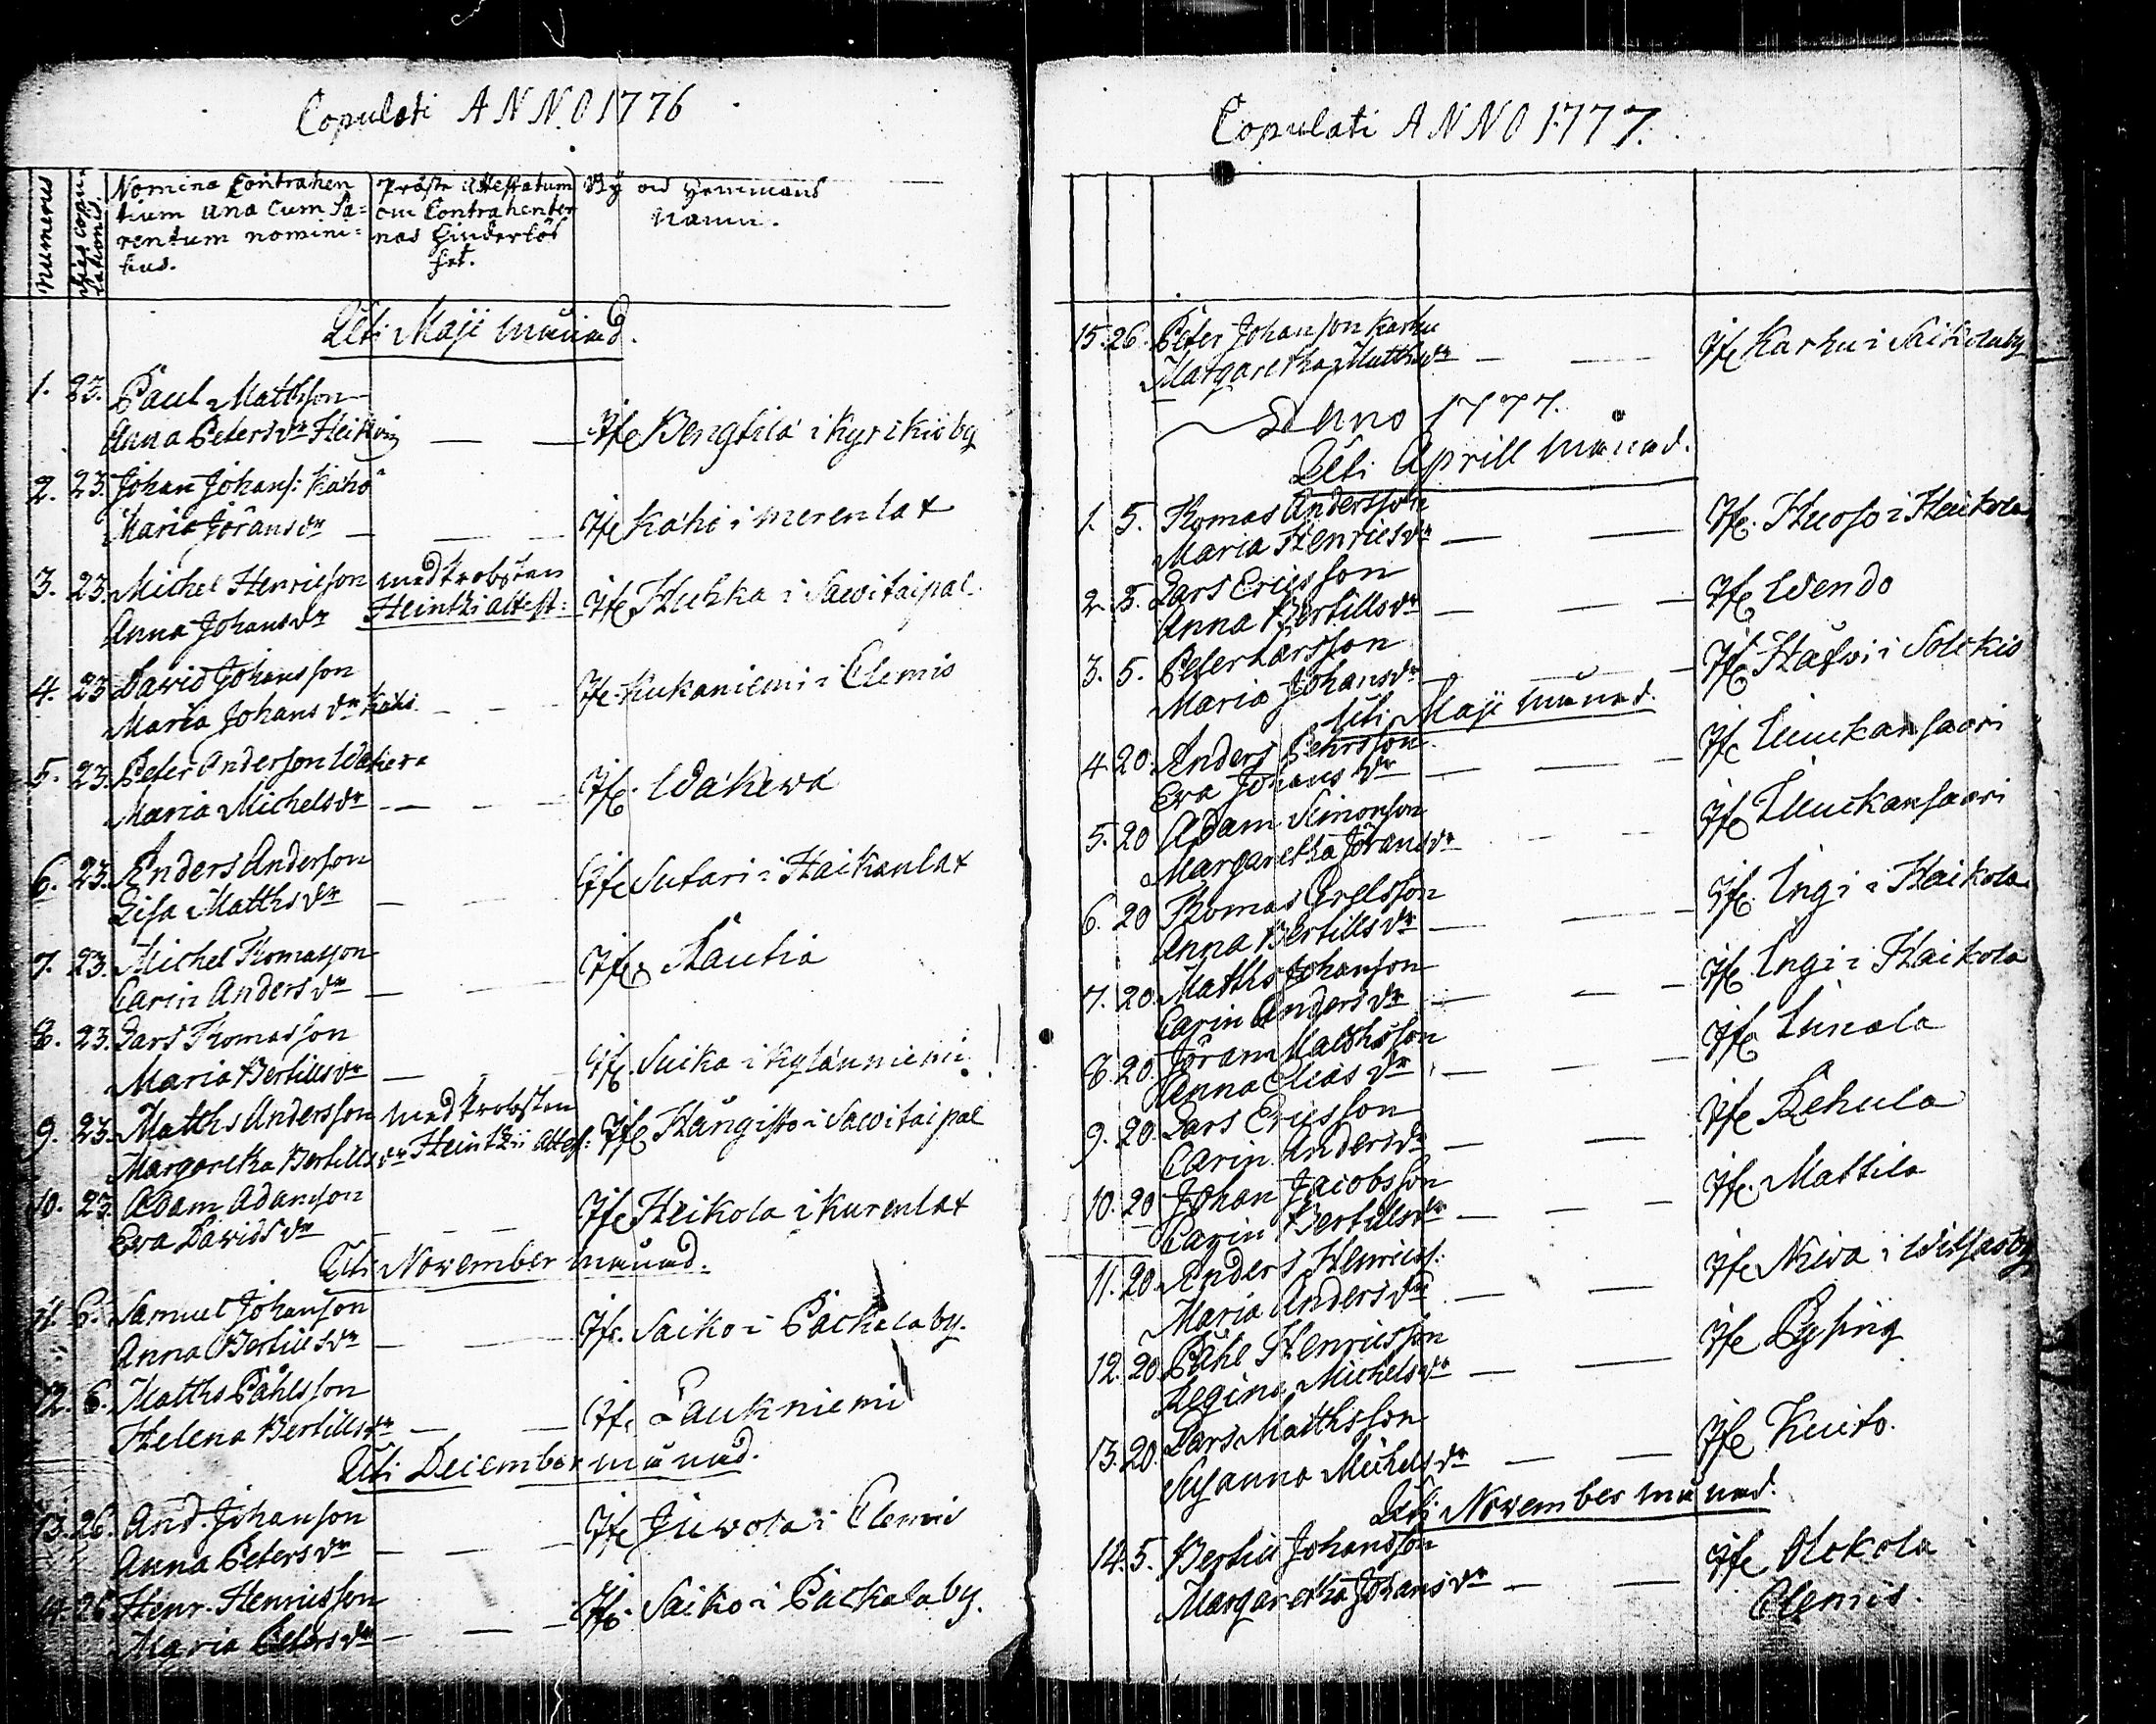 Copulati ANNO 1776
numerus
Dies copulationis
Nomina Contrahen
tium una cum Pa=
rentum nomini=
bus.
Präste Attestatum
om Contrahenter
nas Hinderlös
het.
By och Hemmans
namn.
Uti Maji månad.
1. 23. Paul Mathsson
Anna Peters dr Heikoin — — ifr Bengtilä i Kyrikiöby
2. 23. Johan Johans: Kähö
Maria Jörans dr — — ifr Kähö i Merenlax
3. 23. Michel Henricson med Probsten
Anna Johans dr Heintzi attest: ifr Huhka i Sawitaipal
4. 23 David Johansson
Maria Johans dr — — ifr Kukaniemi i Clemis
5. 23. Peter Anderson
Maria Michels dr — — ifr Wäkewä
6. 23. Anders Anderson
Lisa Matths dr — — ifr Sutari i Haikanlax
7. 23. Michel Thomasson
Carin Anders dr — — ifr Rautia
8. 23. Lars Thomasson
Maria Bertills dr — — ifr Suika i Kyläniemi
9. 23. Matths Andersson med Probsten
Margaretha Bertills dr Heintzii attest: ifr Hängistö i Sawitaipal
10. 23. Adam Adamson
Eva Davids dr — — ifr Heikola i Kurenlax
Uti November månad.
11. 6. Samuel Johanson
Anna Bertills dr — — ifr Saiko i Päckäläby.
12. 6. Matths Påhlsson
Helena Bertills dr — — ifr Laukniemi
Uti December månad.
13. 26. And. Johanson
Anna Peters dr — — ifr Juvola i Clemis
14. 26 Henr. Henricsson
Maria Peters dr — — ifr Saiko i Päckäläby.
Copulati ANNO 1777.
15. 26. Peter Johanson Karhu
Margaretha Matths dr — — ifr Karhu i Saikolaby
Anno 1777.
Uti Aprill månad.
1. 5. Thomas Andersson
Maria Henrics dr — — ifr Huoso i Heikola
2. 5. Lars Ericsson
Anna Bertills dr — — ifr Wendo
3. 5. Peter Larsson
Maria Johans dr — — ifr i Solkis
Uti Maji månad.
4. 20. Anders Pehrsson
Eva Johans dr — — ifr Liuckansaari
5. 20 Adam Simonson
Margaretha Jörans dr — — ifr Liuckansaari
6. 20 Thomas Grelsson
Anna Bertills dr — — ifr Ingi i Haikola
7. 20. Matths Johanson
Carin Anders dr — — ifr Ingi i Haikola
8. 20. Jöram Mathsson
Anna Elias dr — — ifr Linala
9. 20. Lars Ericsson
Carin Anders dr — — ifr Rehula
10. 20 Johan Jacobsson
Carin Bertills dr — — ifr Mattila
11. 20 Anders Henrics:
Maria Anders dr — — ifr Niva i
12. 20. Påhl Henricsson
Regina Michels dr — — ifr Pysing
13. 20. Lars Matthsson
Susanna Michels dr — — ifr Kuito.
Uti November månad.
14. 5. Bertill Johansson
Margaretha Johans dr — — ifr Olckola i
Clemis.